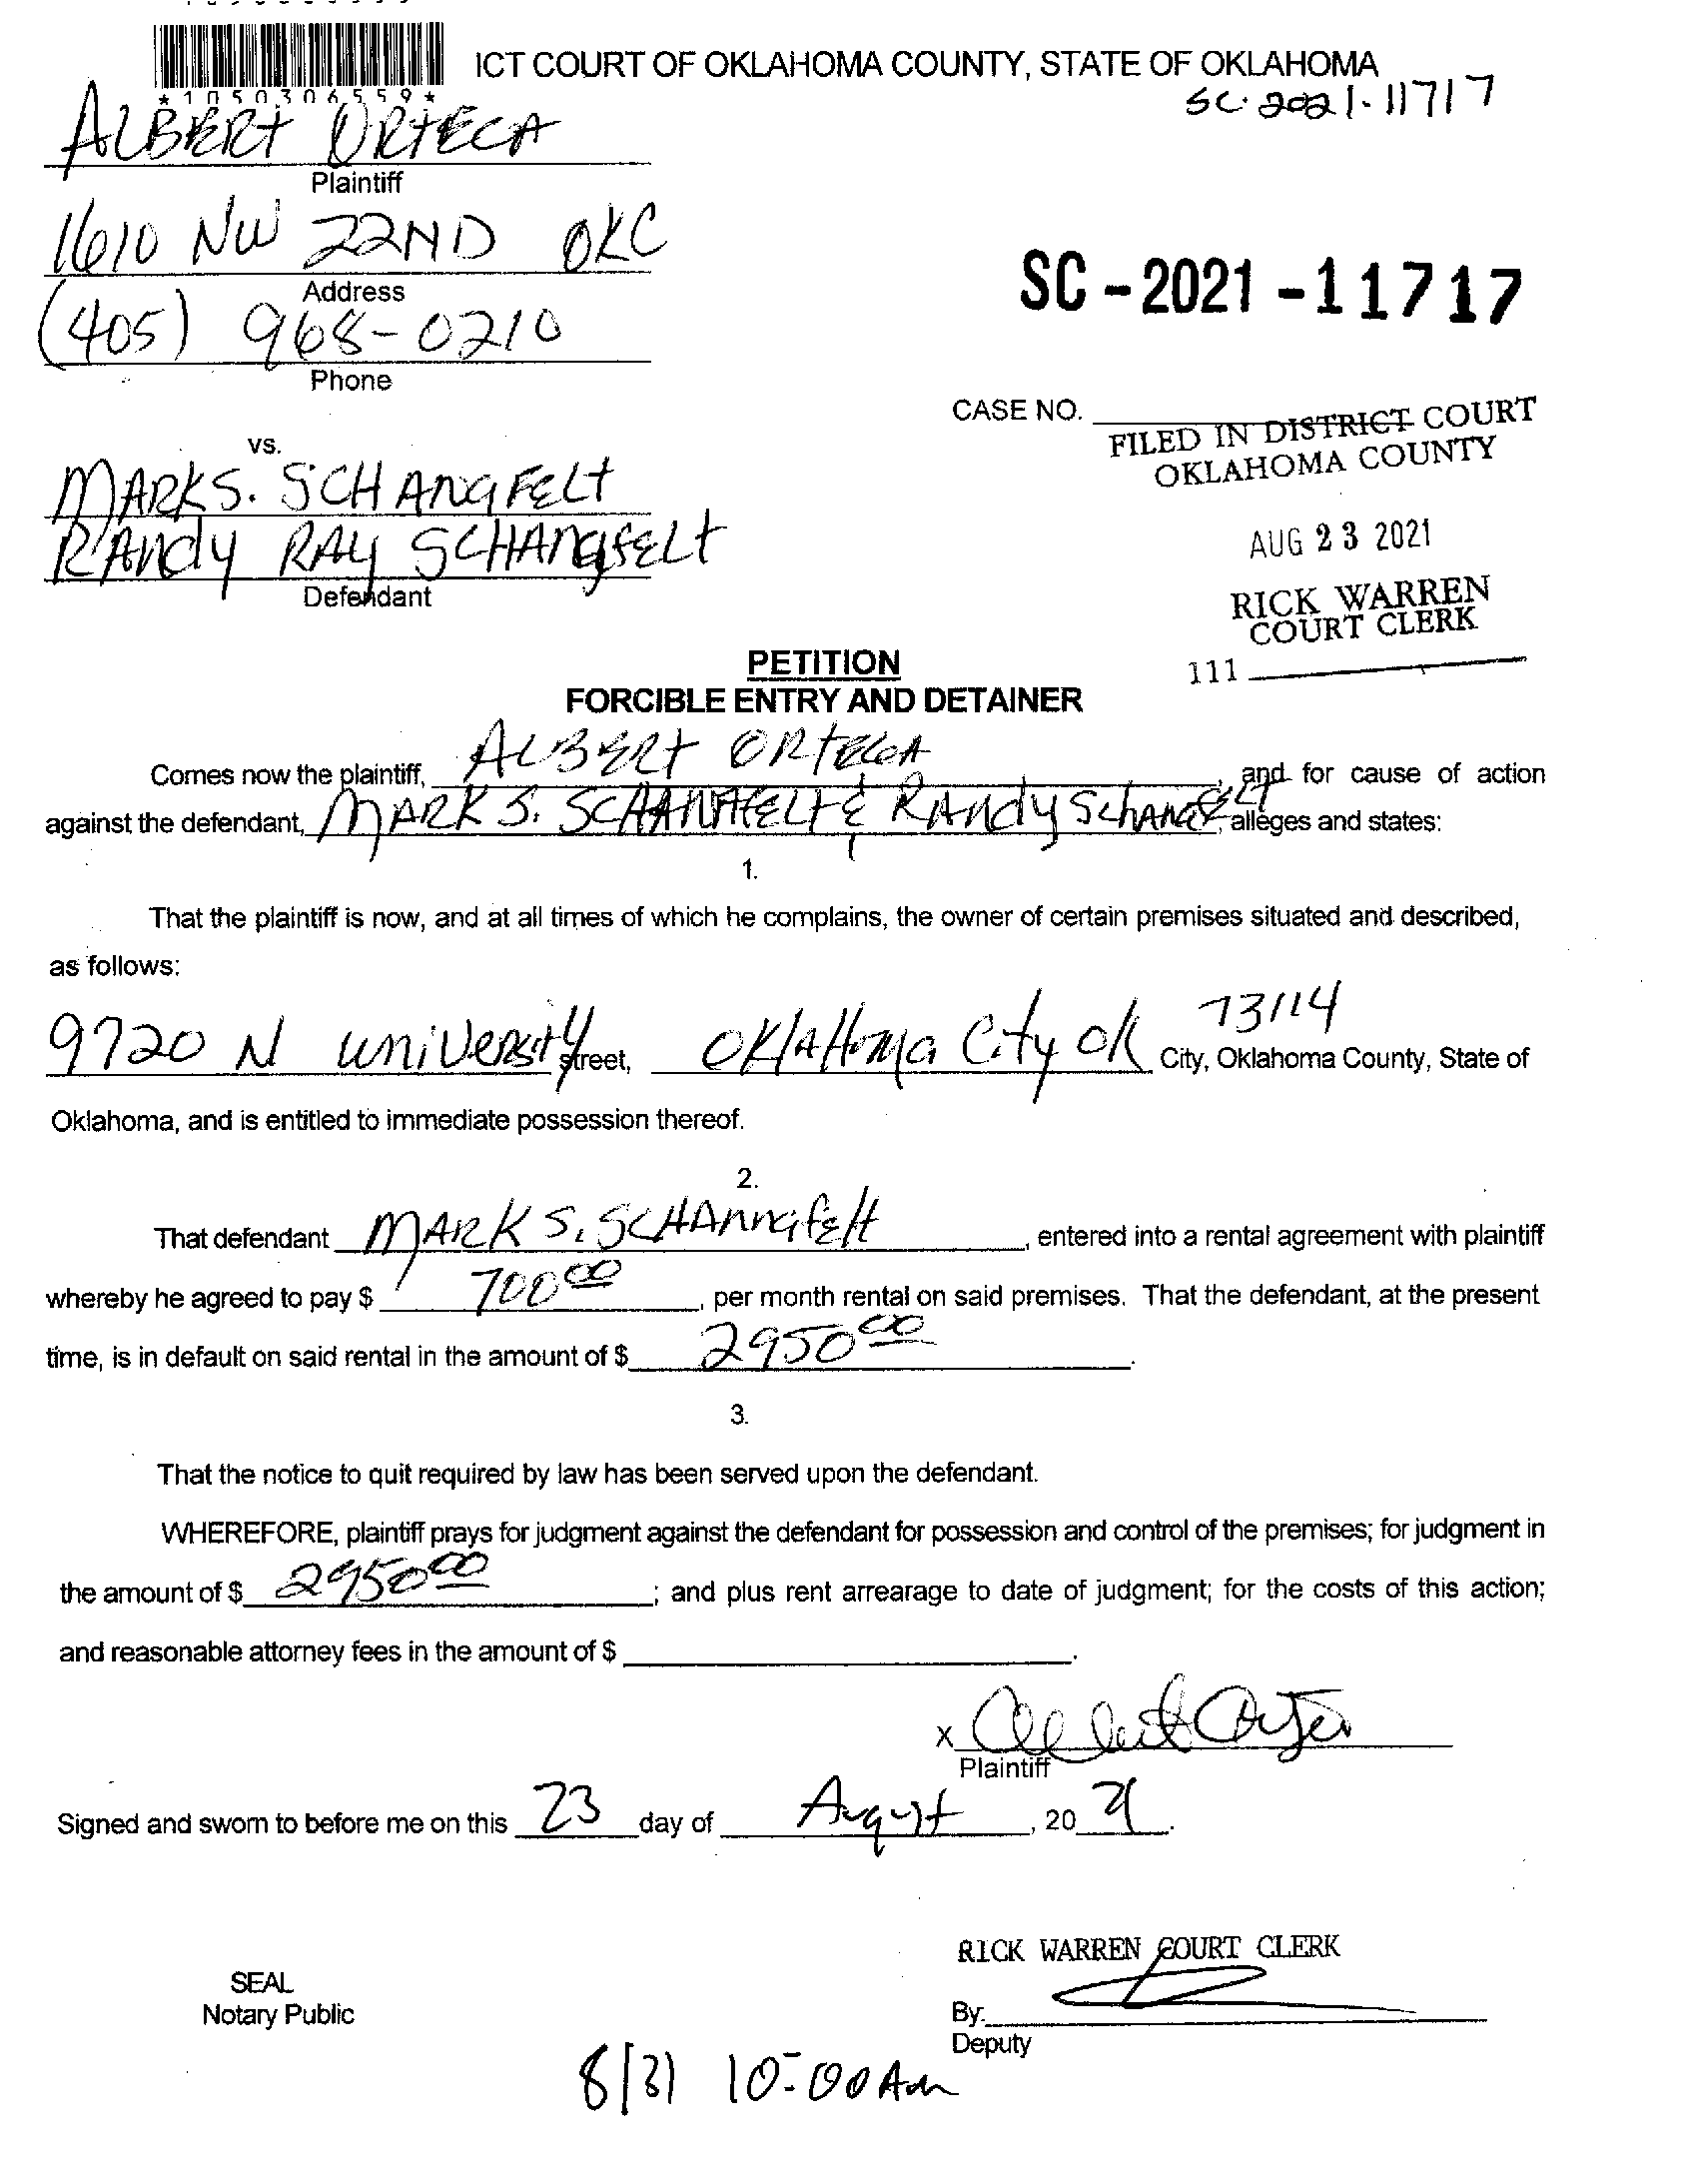 *1050306559*
ICT COURT OF OKLAHOMA COUNTY, STATE OF OKLAHOMA
SC-2021-11717
ALBERT ORTEGA
Plaintiff
1610 NW 22ND OKC
Address
(405) 968-0210
Phone
SC-2021-11717
CASE NO.
FILED IN DISTRICT COURT
OKLAHOMA COUNTY
vs.
MARK S. SCHANGFELT
RANdy RAY SCHANGFELT
Defendant
AUG 23 2021
RICK WARREN
COURT CLERK
111
PETITION
FORCIBLE ENTRY AND DETAINER
Comes now the plaintiff, ALBERT ORTEGA, and for cause of action
against the defendant, MARK S. & RANdy alleges and states:
1.
That the plaintiff is now, and at all times of which he complains, the owner of certain premises situated and described,
as follows:
9720 N University street, OklAHoma City ok 73114 City, Oklahoma County, State of
Oklahoma, and is entitled to immediate possession thereof.
2.
That defendant MARK S. SCHAnngfelt, entered into a rental agreement with plaintiff
whereby he agreed to pay $ 700 00, per month rental on said premises. That the defendant, at the present
time, is in default on said rental in the amount of $ 2950 00.
3.
That the notice to quit required by law has been served upon the defendant.
WHEREFORE, plaintiff prays for judgment against the defendant for possession and control of the premises; for judgment in
the amount of $ 2950 00; and plus rent arrearage to date of judgment; for the costs of this action;
and reasonable attorney fees in the amount of $ .
X
Plaintiff
Signed and sworn to before me on this 23 day of August, 20 21.
RICK WARREN COURT CLERK
SEAL
Notary Public
By:
Deputy
8/31 10:00 Am